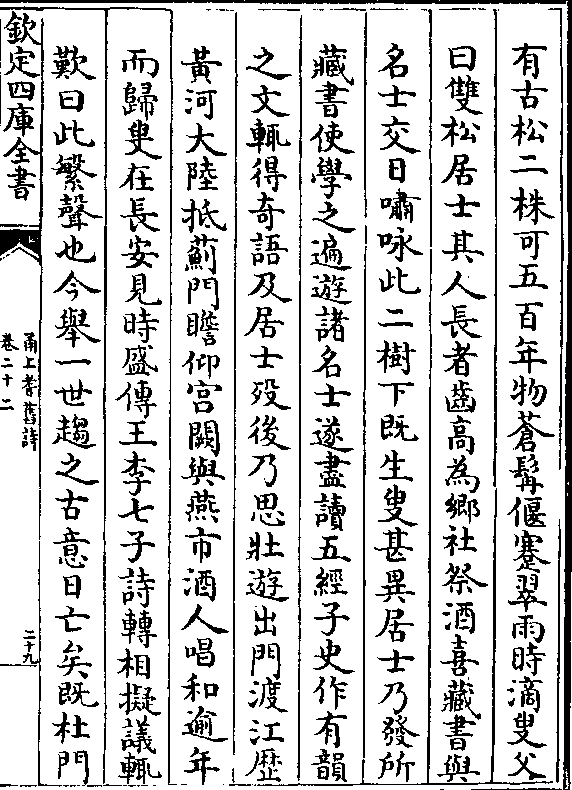 有古松二株可五百年物蒼髯偃蹇翠雨時滴叟父
曰雙松居士其人長者齒高為鄉社祭酒喜藏書與
名士交日嘯咏此二樹下既生叟甚異居士乃發所
藏書使學之遍遊諸名士遂盡讀五經子史作有韻
之文輒得奇語及居士歿後乃思壯遊出門渡江歷
黃河大陸抵薊門瞻仰宮闕與燕市酒人唱和逾年
而歸叟在長安見時盛傳王李七子詩轉相擬議輒
歎曰此繁聲也今舉一世趨之古意日亡矣既杜門
欽定四庫全書
甬上耆舊詩
卷二十二
二十九